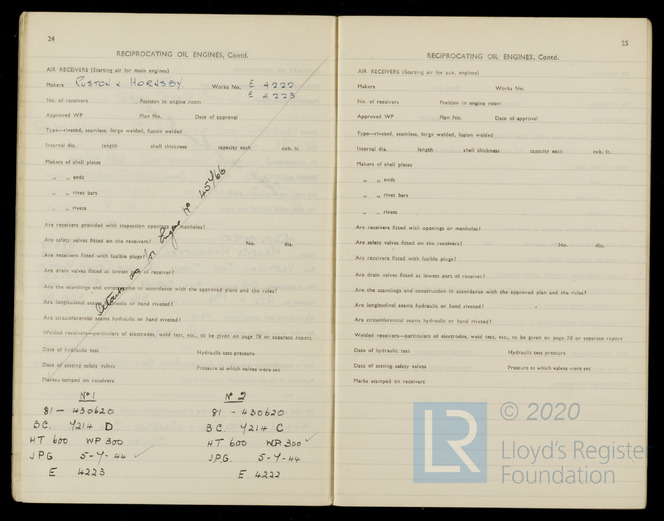 24
RECIPROCATING OIL ENGINES, Contd.
AIR RECEIVERS (Starting air for main engines)
Makers RUSTON & HORNSBY Works No. E 4222
E 4223
No. of receivers Position in engine room
Approved WP Plan No. Date of approval
Type—riveted, seamless, forge welded, fusion welded
Internal dia. length shell thickness capacity each cub. ft.
Makers of shell plates
„ „ ends
„ „ rivet bars
„ „ rivets
Are receivers provided with inspection openings or manholes?
Are safety valves fitted on the receivers? No. dia.
Are receivers fitted with fusible plugs?
Are drain valves fitted at lowest part of receiver?
Are the scantlings and construction in accordance with the approved plans and the rules?
Are longitudinal seams hydraulic or hand riveted?
Are circumferential seams hydraulic or hand riveted?
Welded receivers—particulars of electrodes, weld test, etc., to be given on page 78 or separate report
Date of hydraulic test Hydraulic test pressure
Date of setting safety valves Pressure at which valves were set
Marks stamped on receivers
Details as for Engine No 45466
No 1
81 - 430620
B.C. 4214 D
HT 600 WP 300
J.P.G 5-7-44
E 4223
No 2
81 - 430620
B.C. 4214 C
HT 600 WP 300
J.P.G. 5-7-44
E 4222
25
RECIPROCATING OIL ENGINES, Contd.
AIR RECEIVERS (Starting air for aux. engines)
Makers Works No.
No. of receivers Position in engine room
Approved WP Plan No. Date of approval
Type—riveted, seamless, forge welded, fusion welded
Internal dia. length shell thickness capacity each cub. ft.
Makers of shell plates
„ „ ends
„ „ rivet bars
„ „ rivets
Are receivers fitted with openings or manholes?
Are safety valves fitted on the receivers? No. dia.
Are receivers fitted with fusible plugs?
Are drain valves fitted at lowest part of receiver?
Are the scantlings and construction in accordance with the approved plan and the rules?
Are longitudinal seams hydraulic or hand riveted?
Are circumferential seams hydraulic or hand riveted?
Welded receivers—particulars of electrodes, weld test, etc., to be given on page 78 or separate report
Date of hydraulic test Hydraulic test pressure
Date of setting safety valves Pressure at which valves were set
Marks stamped on receivers
LR
© 2020
Lloyd's Register
Foundation